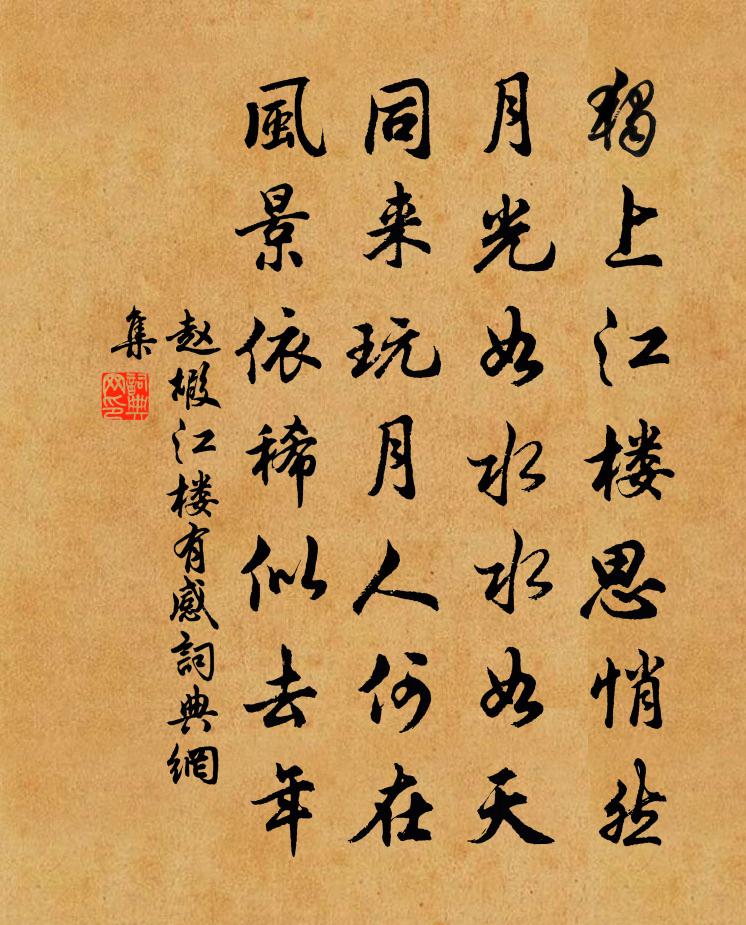 獨上江楼思悄然
月光如水水如天
同来玩月人何在
風景依稀似去年
赵嘏江楼有感詞典網
集
詞典
网印